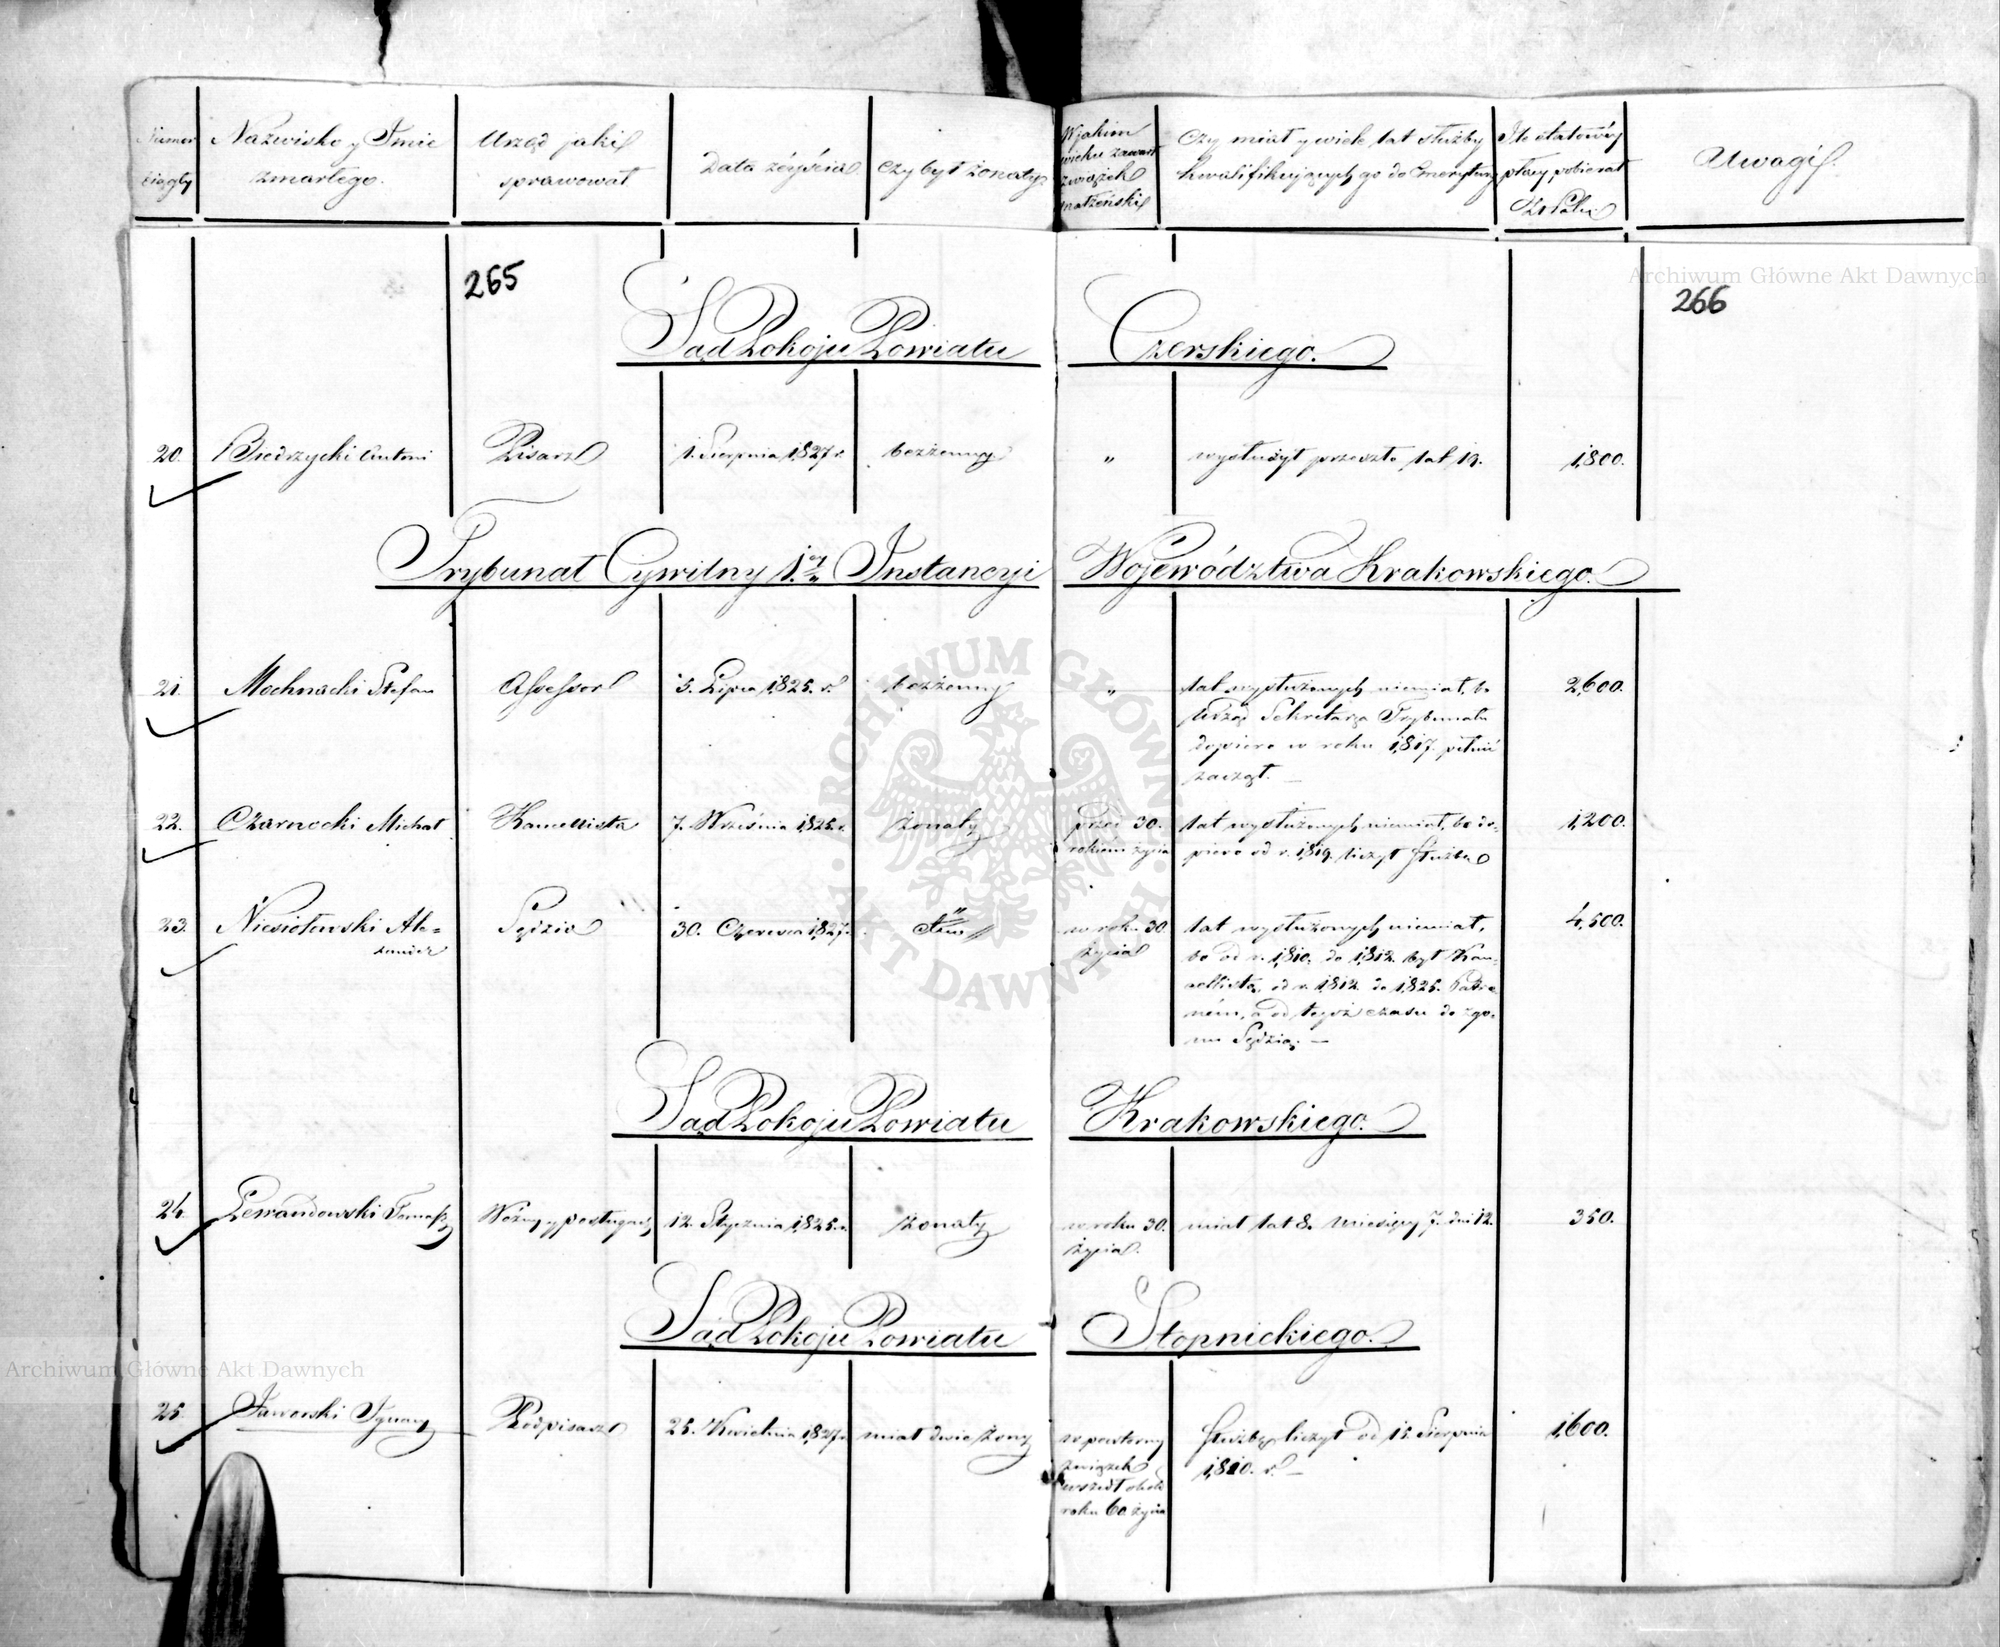 Numer ciągły
Nazwisko y Imie zmarłego.
Urząd jaki sprawował
Data zéyścia
czy był żonaty
W jakim wieku zawarł związek małżeński
Czy miał y wiele lat służby kwalifikujących go do Emerytury
Ile etatowéy płacy pobierał Zł Pols:
Uwagi.
265
266
Archiwum Główne Akt Dawnych
Sąd Pokoju Powiatu Czerskiego.
20. Biedrzycki Antoni Pisarz 1. Sierpnia 1,827 r. bezżenny „ wysłużył przeszło lat 19. 1,800.
Trybunał Cywilny 1éy Instancyi Województwa Krakowskiego.
21. Mochnacki Stefan Assessor 5. Lipca 1,825. r. bezżenny „ lat wysłużonych niemiał, bo 2,600.
Urząd Sekretarza Trybunału
dopiero w roku 1,817. pełnić
zaczął. —
22. Czarnocki Michał Kancellista 7. Września 1,825. r. żonaty przed 30. lat wysłużonych niemiał, bo do- 1,200.
rokiem życia piero od r. 1,819. liczył służbę
23. Niesiołowski Ale= Sędzia 30. Czerwca 1,827. r. w rok. 30. lat wysłużonych niemiał, 4,500.
xander życia bo od r. 1,810. do 1,812. był Kan-
cellistą, od r. 1,812. do 1,825. Patro-
nem, a od tegoż czasu do zgo-
nu Sędzią. —
Sąd Pokoju Powiatu Krakowskiego.
24. Lewandowski Tomasz Woźny y posługacz 12. Stycznia 1,825. r. żonaty w roku 30. miał lat 8. miesięcy 7. dni 12. 350.
życia.
Sąd Pokoju Powiatu Stopnickiego.
Archiwum Główne Akt Dawnych
25. Jaworski Ignacy Podpisarz 25. Kwietnia 1,827 r. miał dwie żony w powtórny Służbę liczył od 15. Sierpnia 1,600.
związek 1,810. r. —
wszedł około
roku 60. życia
ARCHIWUM GŁÓWNE AKT DAWNYCH